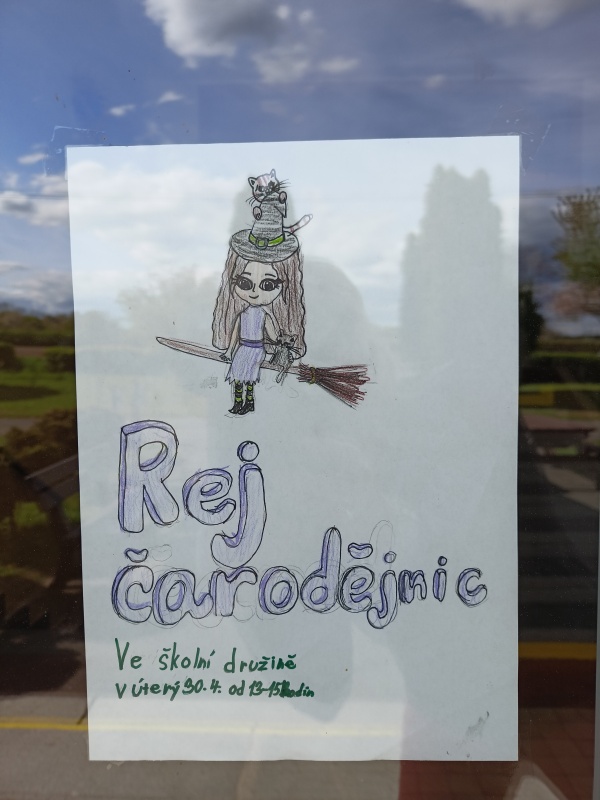 Rej
čarodějnic
Ve školní družině
v úterý 30.4. od 13-15hodin